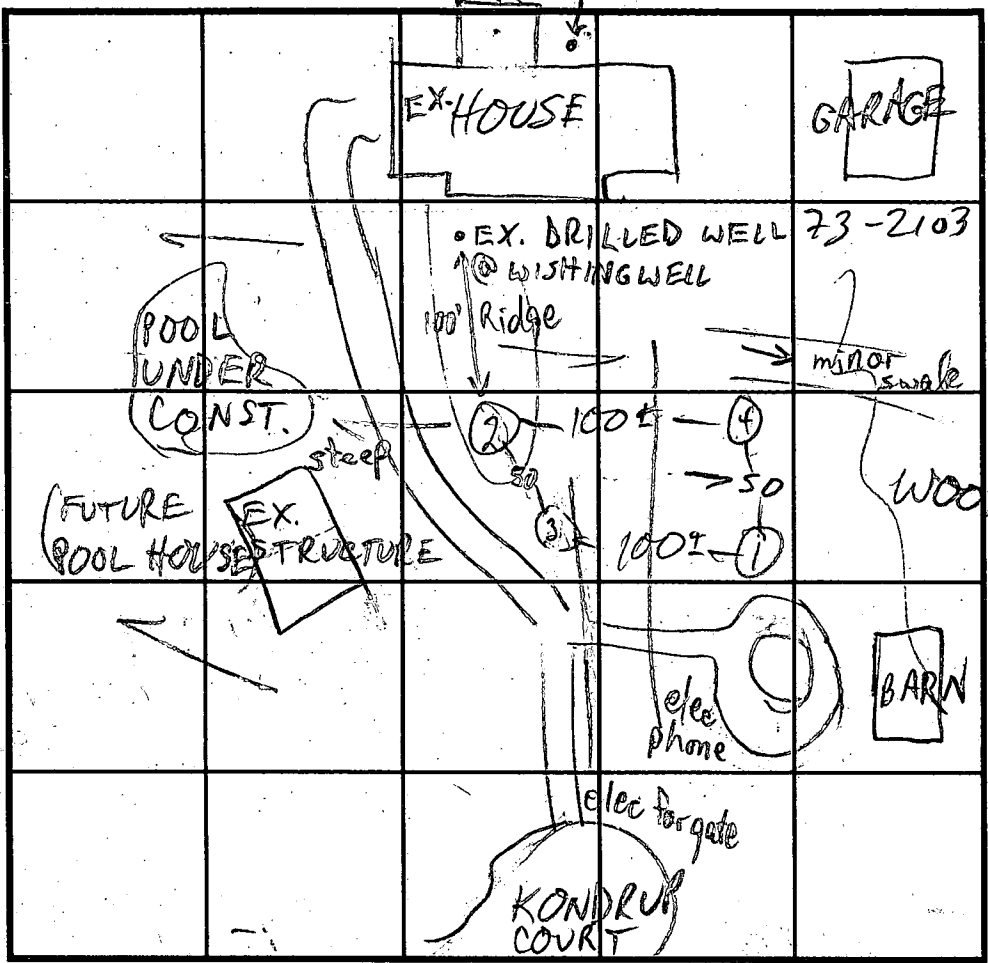 EX. HOUSE
GARAGE
• EX. DRILLED WELL 73-2103
@ WISHINGWELL
100' Ridge
POOL
UNDER
CONST.
minor
swale
2 100± 4
steep
50
50
3 100± 1
WOO
(FUTURE
POOL HOUSE)
EX.
STRUCTURE
BARN
elec
phone
elec for gate
KONDRUP
COURT